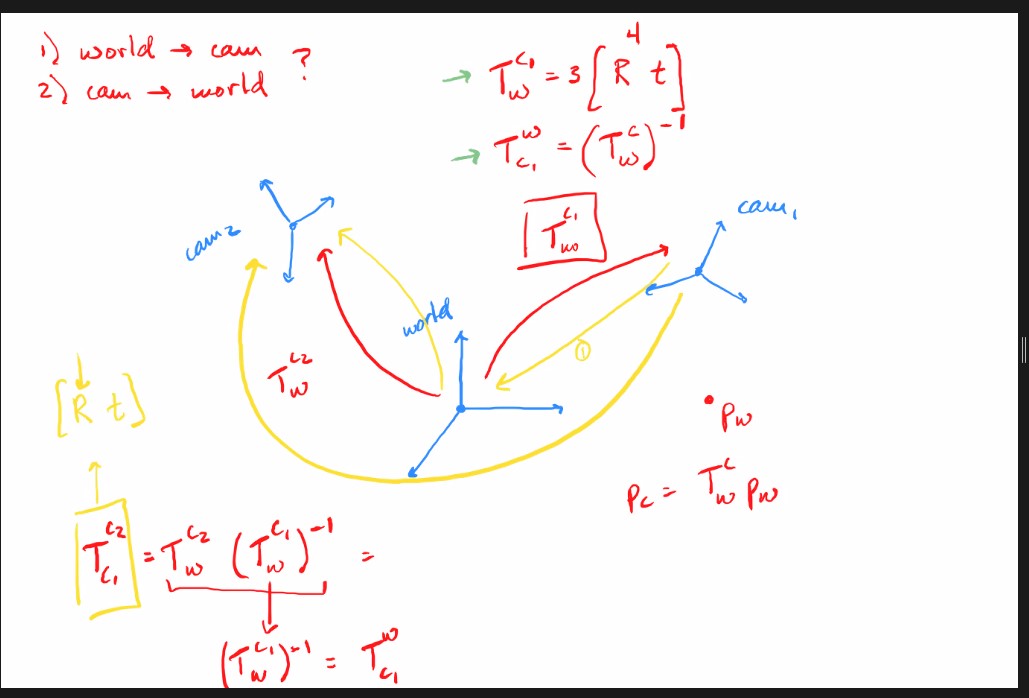 1) world → cam ?
2) cam → world
→ T_w^{c_1} = 3 [ R t ] 4
→ T_{c_1}^w = (T_w^c)^{-1}
T_{wo}^{c_1}
cam_1
cam_2
world
①
T_w^{c_2}
[ R t ]
• p_w
p_c = T_w^c p_w
T_{c_1}^{c_2} = T_w^{c_2} (T_w^{c_1})^{-1} =
(T_w^{c_1})^{-1} = T_{c_1}^w